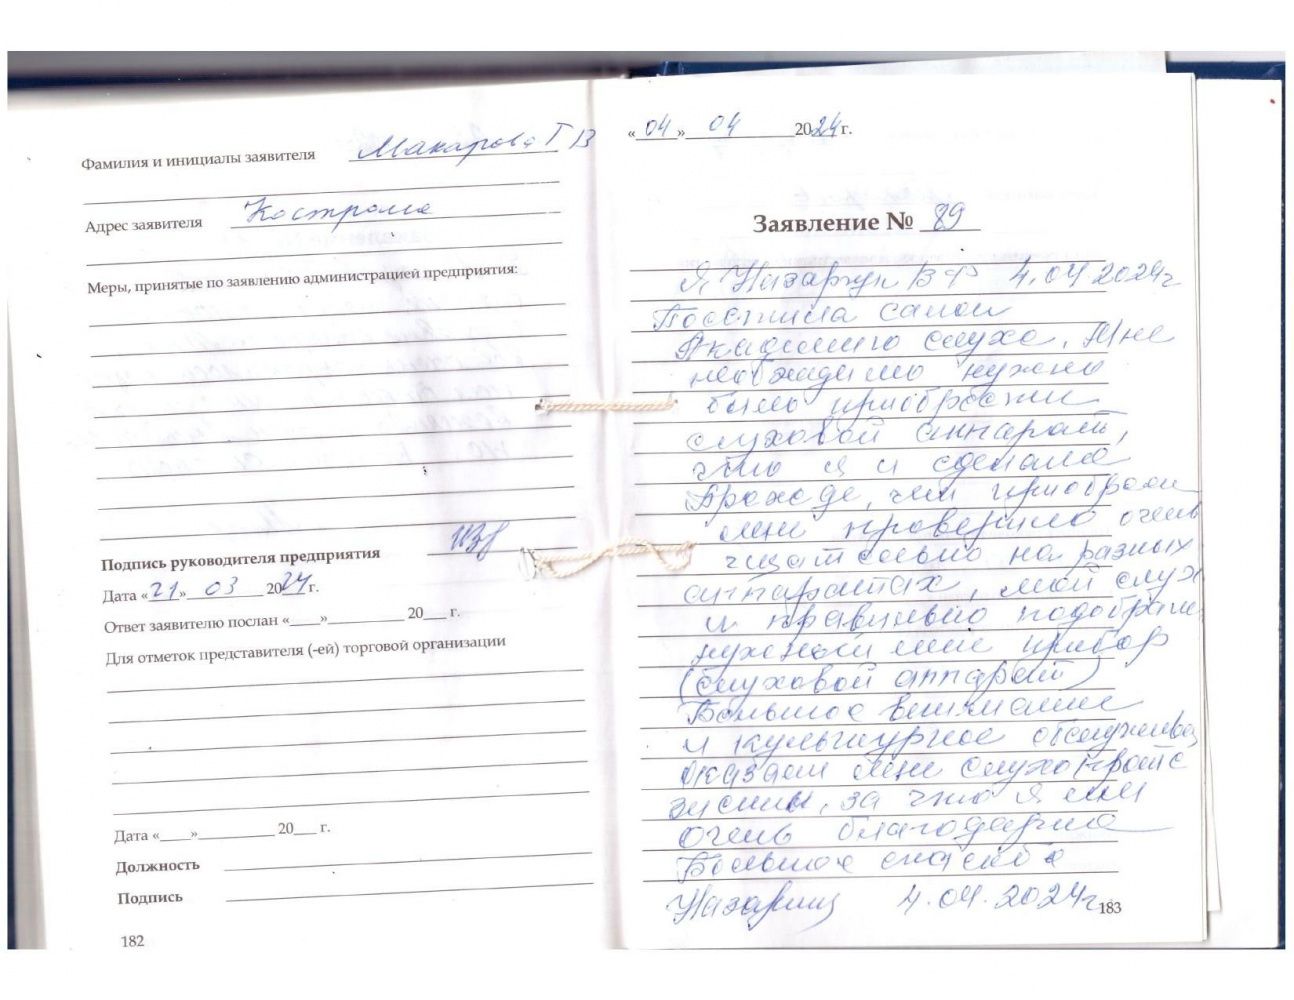 Фамилия и инициалы заявителя Макарова Г В
Адрес заявителя Кострома
Меры, принятые по заявлению администрацией предприятия:
Подпись руководителя предприятия
Дата «21» 03 2024г.
Ответ заявителю послан «___»__________ 20___ г.
Для отметок представителя (-ей) торговой организации
Дата «____»__________ 20___ г.
Должность
Подпись
182
«04» 04 2024г.
Заявление № 89
Я, Назарчук В Ф 4.04.2024г
Посетила салон
Академию слуха. Мне
необходимо нужно
было приобрести
слуховой аппарат,
что я и сделала
Прежде, чем приобрели
мне проверили очень
тщательно на разных
аппаратах, мой слух
и правильно подобрали
нужный мне прибор
(слуховой аппарат)
Большое внимание
и культурное обслужива
оказал мне слухопротез
за что я им
очень благодарна
Большое спасибо
4.04.2024г
183